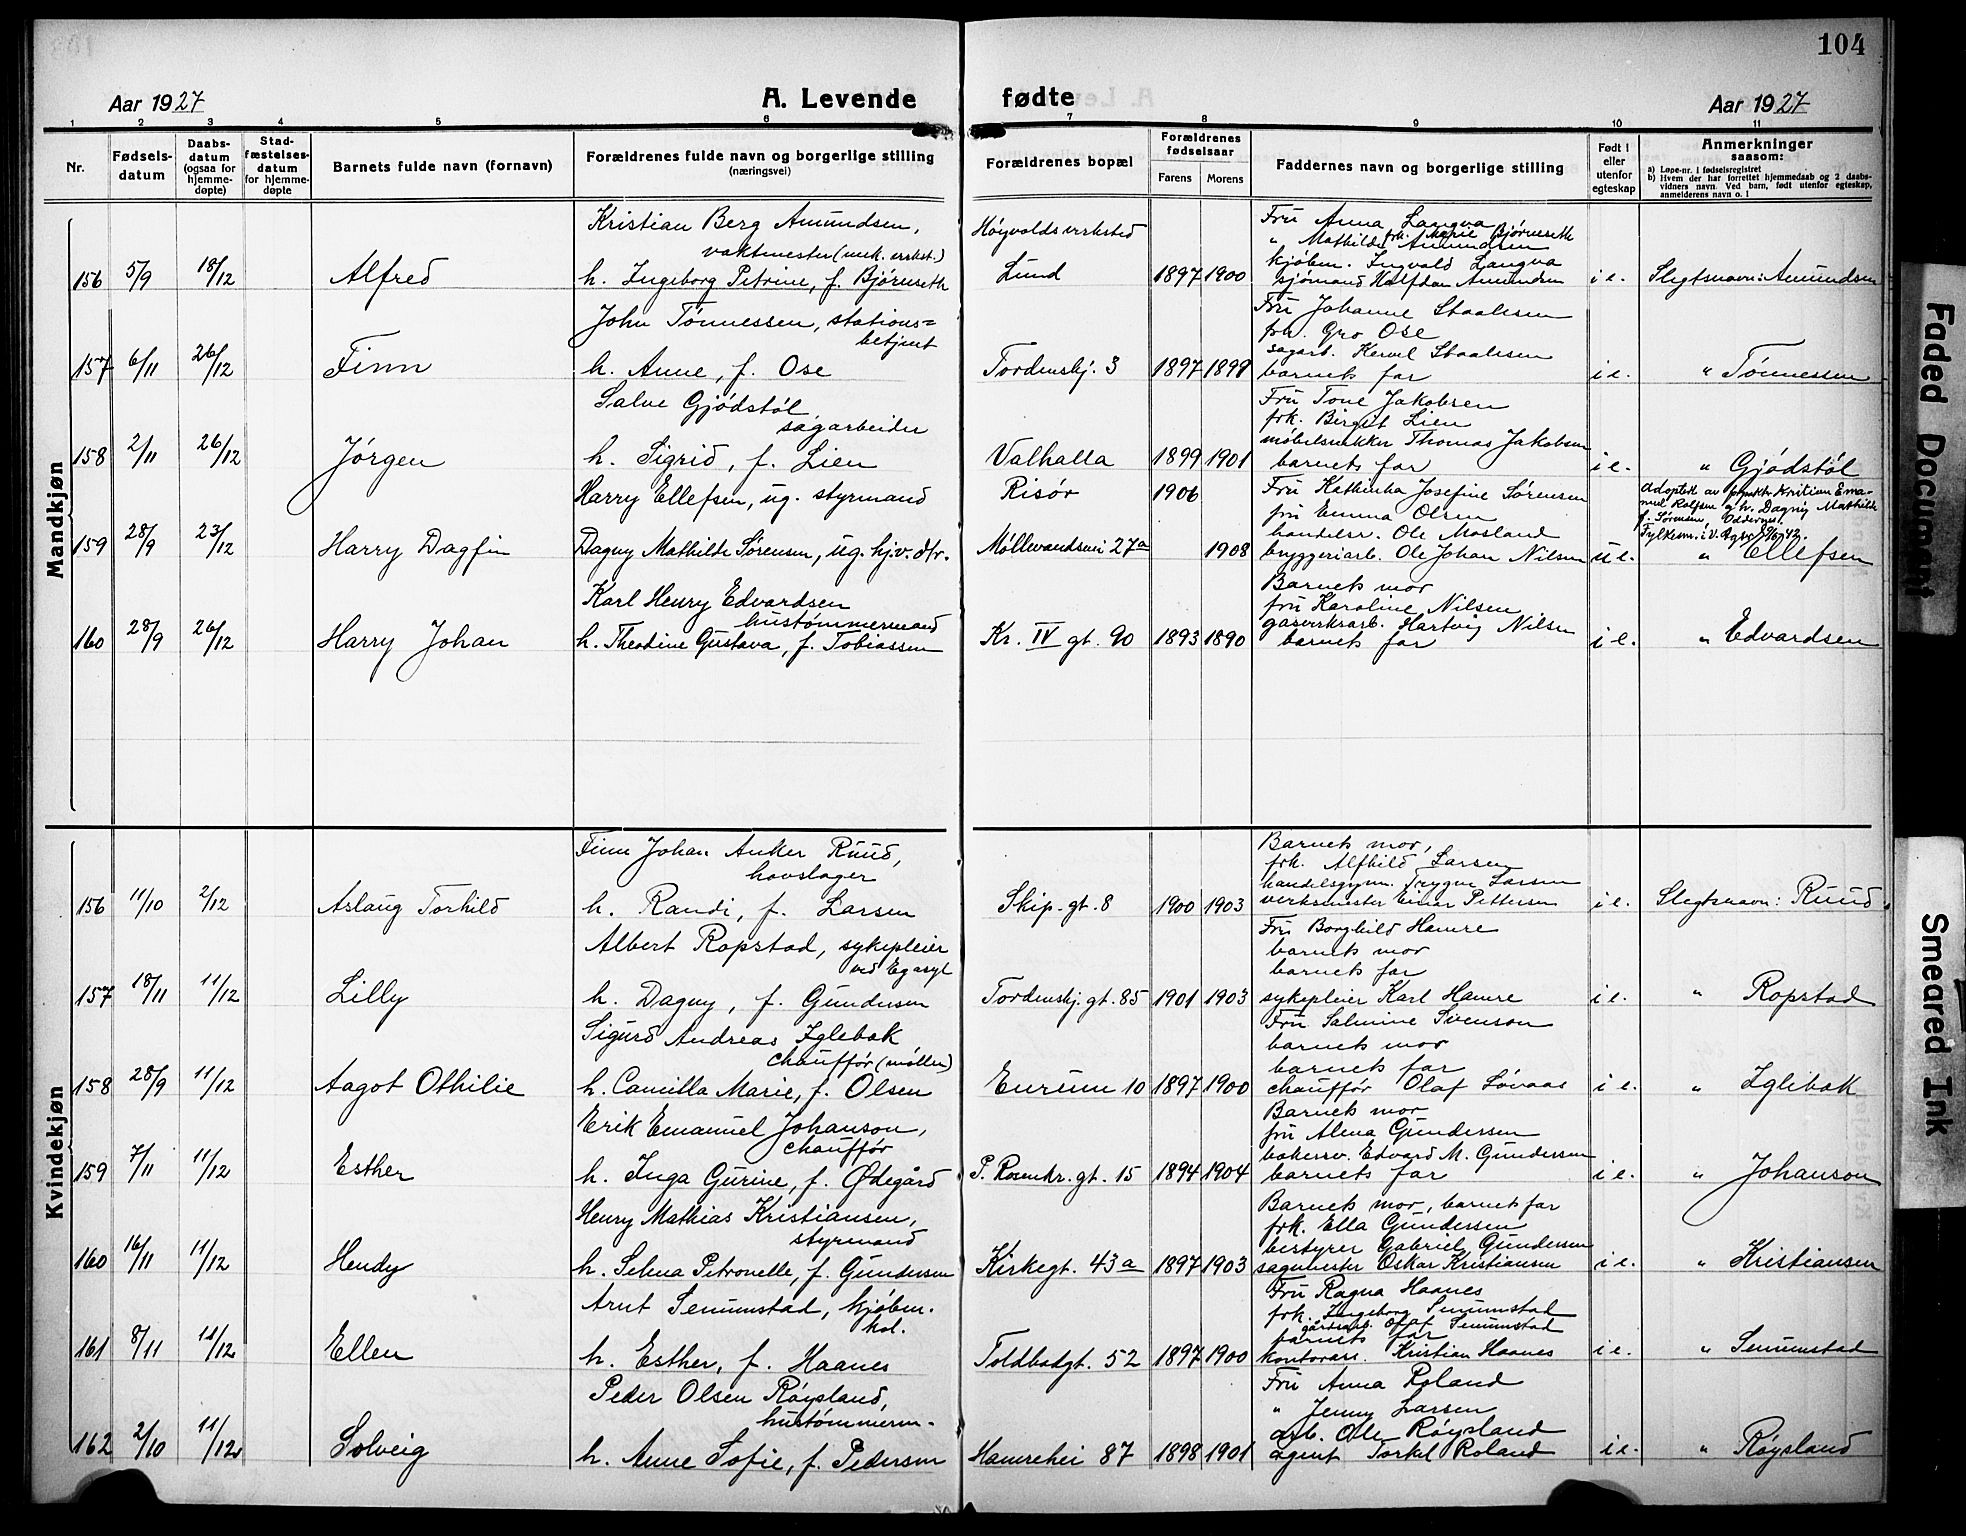 104
Aar 1927
A. Levende
fødte
Aar 1927
1 2 3 4 5 6 7 8 9 10 11
Nr.
Fødsels-
datum
Daabs-
datum
(ogsaa for
hjemme-
døpte)
Stad-
fæstelses-
datum
for hjemme-
døpte
Barnets fulde navn (fornavn)
Forældrenes fulde navn og borgerlige stilling
(næringsvei)
Forældrenes bopæl
Forældrenes
fødselsaar
Farens Morens
Faddernes navn og borgerlige stilling
Født i
eller
utenfor
egteskap
Anmerkninger
saasom:
a) Løpe-nr. i fødselsregistret
b) Hvem der har forrettet hjemmedaab og 2 daabs-
vidners navn. Ved barn, født utenfor egteskap,
anmelderens navn o. l
Mandkjøn
156 5/9 18/12 Alfred
Kristian Berg Amundsen,
vaktmester (mek. verkst.)
h. Ingeborg Petrine, f. Bjørnseth
Høyvolds verksted
Lund
1897 1900
Fru Anna Langva
frk. Marie Bjørnseth
" Mathilde Amundsen
kjøbm. Ingvald Langva
sjømand Halfdan Amundsen
i e. Slegtsnavn: Amundsen
157 6/11 26/12 Finn
John Tønnessen, stations=
betjent
h. Anne, f. Ose
Tordenskj. 3
1897 1899
Fru Johanne Staalesen
frk. Gro Ose
sagarb. Kervel Staalesen
barnets far
i e. " Tønnessen
158 2/11 26/12 Jørgen
Salve Gjødstøl,
sagarbeider
h. Sigrid, f. Lien
Valhalla
1899 1901
Fru Tone Jakobsen
frk. Birgit Lien
møbelsnekker Thomas Jakobsen
barnets far
i e. " Gjødstøl
159 28/9 23/12 Harry Dagfin
Harry Ellefsen, ug. styrmand
Dagny Mathilde Sørensen, ug. hj.v. dtr.
Risør
Møllevandsvei 27a
1906
1908
Fru Kathinka Josefine Sørensen
fru Emma Olsen
handelsr. Ole Mosland
bryggeriarb. Ole Johan Nilsen
u e.
Adoptert av Kristian Ema-
nuel Rolfsen og h. Dagny Mathilde
f. Sørensen, Oddernes.
Fylkesm. i V. Agder 42.
" Ellefsen
160 28/9 26/12 Harry Johan
Karl Henry Edvardsen
hustømmermand
h. Theodine Gustava, f. Tobiassen
Kr. IV gt. 90
1893 1890
Barnets mor
fru Karoline Nilsen
gasverksarb. Hartvig Nilsen
barnets far
i e. " Edvardsen
Kvindekjøn
156 11/10 2/12 Aslaug Torhild
Finn Johan Anker Ruud,
hovslager
h. Randi, f. Larsen
Skip. gt. 8
1900 1903
Barnets mor,
frk. Alfhild Larsen
handelsgym. Trygve Larsen
verksmester Einar Pettersen
i e. Slegtsnavn: Ruud.
157 18/11 11/12 Lilly
Albert Ropstad, sykepleier
ved Eg asyl
h. Dagny, f. Gundersen
Tordenskj. gt. 85
1901 1903
Fru Borghild Hamre
barnets mor
barnets far
sykepleier Karl Hamre
i e. " Ropstad
158 28/9 11/12 Aagot Othilie
Sigurd Andreas Iglebæk
chauffør (møllen)
h. Camilla Marie, f. Olsen
Enrum 10
1897 1900
Fru Salmine Svenson
barnets mor
barnets far
chauffør Olaf Løvaas
i e. " Iglebæk
159 7/11 11/12 Esther
Erik Emanuel Johanson,
chauffør
h. Inga Gurine, f. Ødegård
P. Rosenkr. gt. 15
1894 1904
Barnets mor
fru Alena Gundersen
bakersv. Edvard M. Gundersen
barnets far
i e. " Johanson
160 16/11 11/12 Hendy
Henry Mathias Kristiansen,
styrmand
h. Selma Petronelle, f. Gundersen
Kirkegt. 43a
1897 1903
Barnets mor, barnets far
frk. Ella Gundersen
bestyrer Gabriel Gundersen
sagmester Oskar Kristiansen
i e. " Kristiansen
161 8/11 11/12 Ellen
Arnt Senumstad, kjøbm.
kol.
h. Esther, f. Haanes
Toldbodgt. 52
1897 1900
Fru Ragna Haanes
frk. Ingeborg Senumstad
gårdsarb. Olaf Senumstad
barnets far
kontorass. Kristian Haanes
i e. " Senumstad
162 2/10 11/12 Solveig
Peder Olsen Røysland,
hustømmerm.
h. Anne Sofie, f. Pedersen
Hamrehei 87
1898 1901
Fru Anna Roland
" Jenny Larsen
arb. Ole Røysland
agent Torkel Roland
i e. " Røysland
Faded Document
Smeared Ink